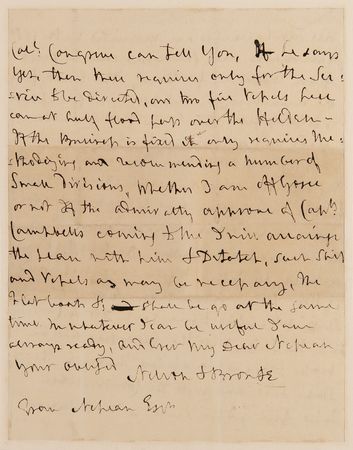 Capt. Congreve can tell You, If he says
Yes, then there requires only for the Ser
=vice to be directed, our two fire Vessels here
cannot half flood pass over the
If the business is fixed it only requires Me=
=thodizing and recommending a number of
Small Divisions, whether I am off Goree
or not If the admiralty approve of Capt.
Campbells coming to Me I will arrange
the plan with him & Detatch such Ships
and Vessels as may be necessary, the
flat boats &c shall be go at the same
time In whatever I can be useful I am
always ready, and Ever My Dear Nepean
Your obliged
Nelson & Bronte
Evan Nepean Esqr.